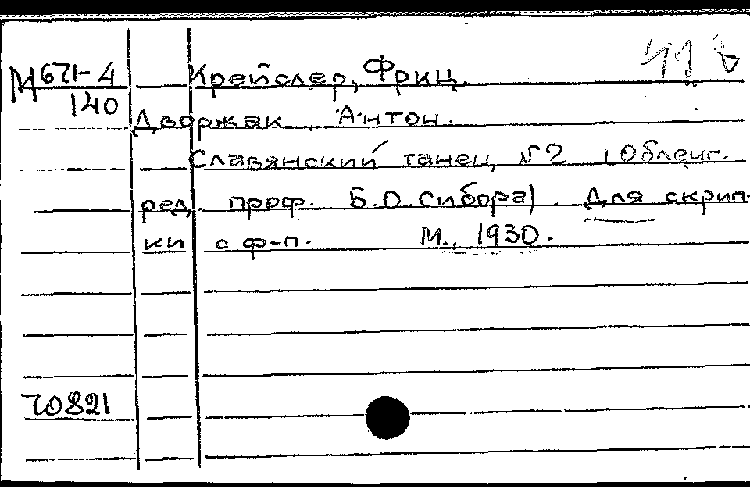 М 671-4 Крейслер, Фриц.
140
Дворжак, Антон.
Славянский танец, №2 (Облегч.
ред. проф. Б.О. Сибора). Для скрип-
ки с ф-п. М., 1930.
70821